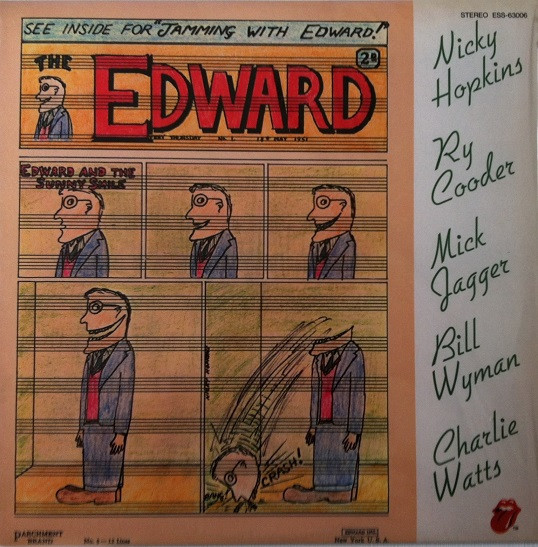 STEREO ESS-63006
SEE INSIDE FOR "JAMMING WITH EDWARD!"
THE
EDWARD
2D
EDWARD AND THE
SUNNY SMILE
CRASH!
Nicky
Hopkins
Ry
Cooder
Mick
Jagger
Bill
Wyman
Charlie
Watts
PARCHMENT
BRAND
No. 1 — 12 Lines
New York U. S. A.